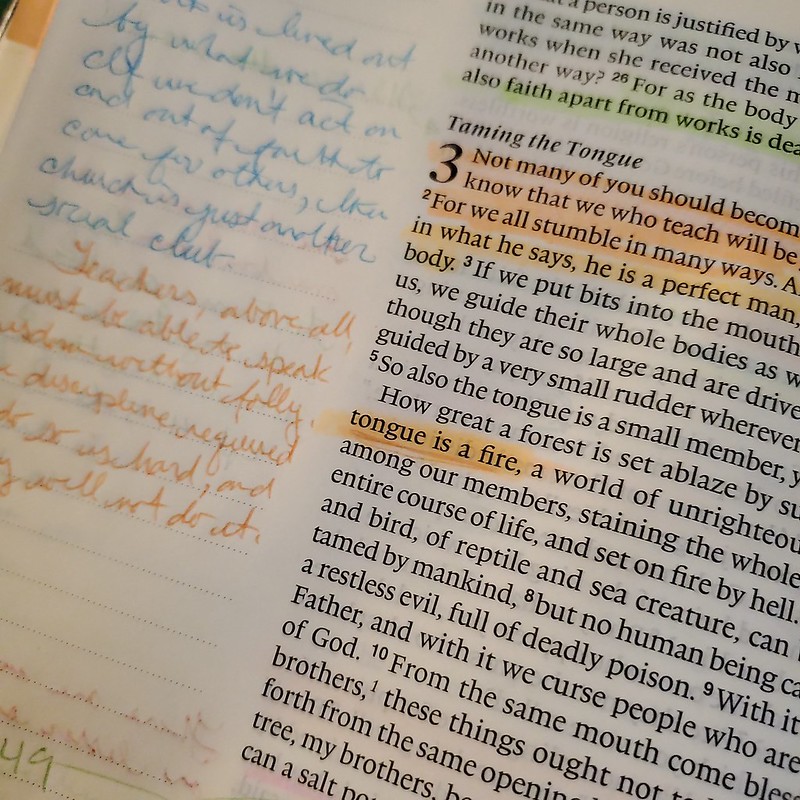 is lived out
by what we do
If we don't act on
and out of faith to
care for others, then
church is just another
social club.
Teachers, above all,
must be able to speak
wisdom without folly.
discipline required
do so is hard, and
will not do it.
49
a person is justified by
in the same way was not also
works when she received the
another way? 26 For as the body
also faith apart from works is dea
Taming the Tongue
3 Not many of you should becom
know that we who teach will be
2 For we all stumble in many ways. A
in what he says, he is a perfect man,
body. 3 If we put bits into the mouth
us, we guide their whole bodies as w
though they are so large and are drive
guided by a very small rudder wherever
5 So also the tongue is a small member, y
How great a forest is set ablaze by su
tongue is a fire, a world of unrighteou
among our members, staining the whole
entire course of life, and set on fire by hell.
and bird, of reptile and sea creature, can
tamed by mankind, 8 but no human being ca
a restless evil, full of deadly poison. 9 With it
Father, and with it we curse people who are
of God. 10 From the same mouth come bless
brothers, 1 these things ought not to
forth from the same opening
tree, my brothers, be
can a salt po